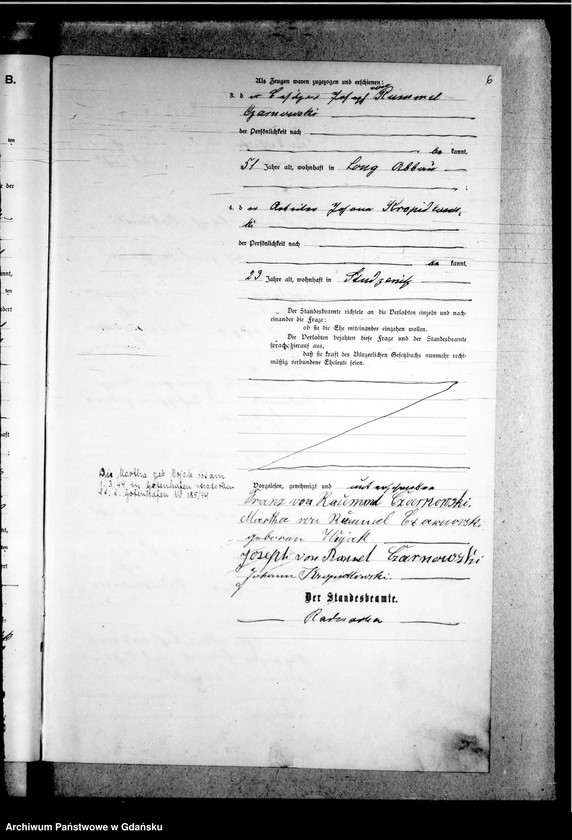 B.
6
Als Zeugen waren zugezogen und erschienen:
3. der Besitzer Josef von Rummel
Czarnowski
der Persönlichkeit nach
be kannt,
51 Jahre alt, wohnhaft in Long Abbau
;
4. der Arbeiter Johann Kropidlows-
ki
der Persönlichkeit nach
be kannt,
23 Jahre alt, wohnhaft in Studzenitz
Der Standesbeamte richtete an die Verlobten einzeln und nach-
einander die Frage:
ob sie die Ehe miteinander eingehen wollen.
Die Verlobten bejahten diese Frage und der Standesbeamte
sprach hierauf aus,
daß sie kraft des Bürgerlichen Gesetzbuchs nunmehr recht-
mäßig verbundene Eheleute seien.
Die Martha geb ist am
3.44 in Gotenhafen verstorben
St. A. Gotenhafen Nr 185/44
Vorgelesen, genehmigt und unterschrieben
Franz von Czarnowski.
Martha von Rummel Czarnowski
geboren
Joseph von Czarnowski
Johann Kropidlowski.
Der Standesbeamte.
Archiwum Państwowe w Gdańsku